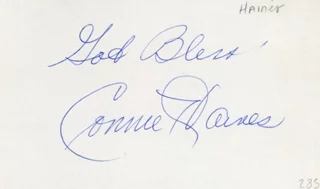 Haines
God Bless
Connie Haines
235